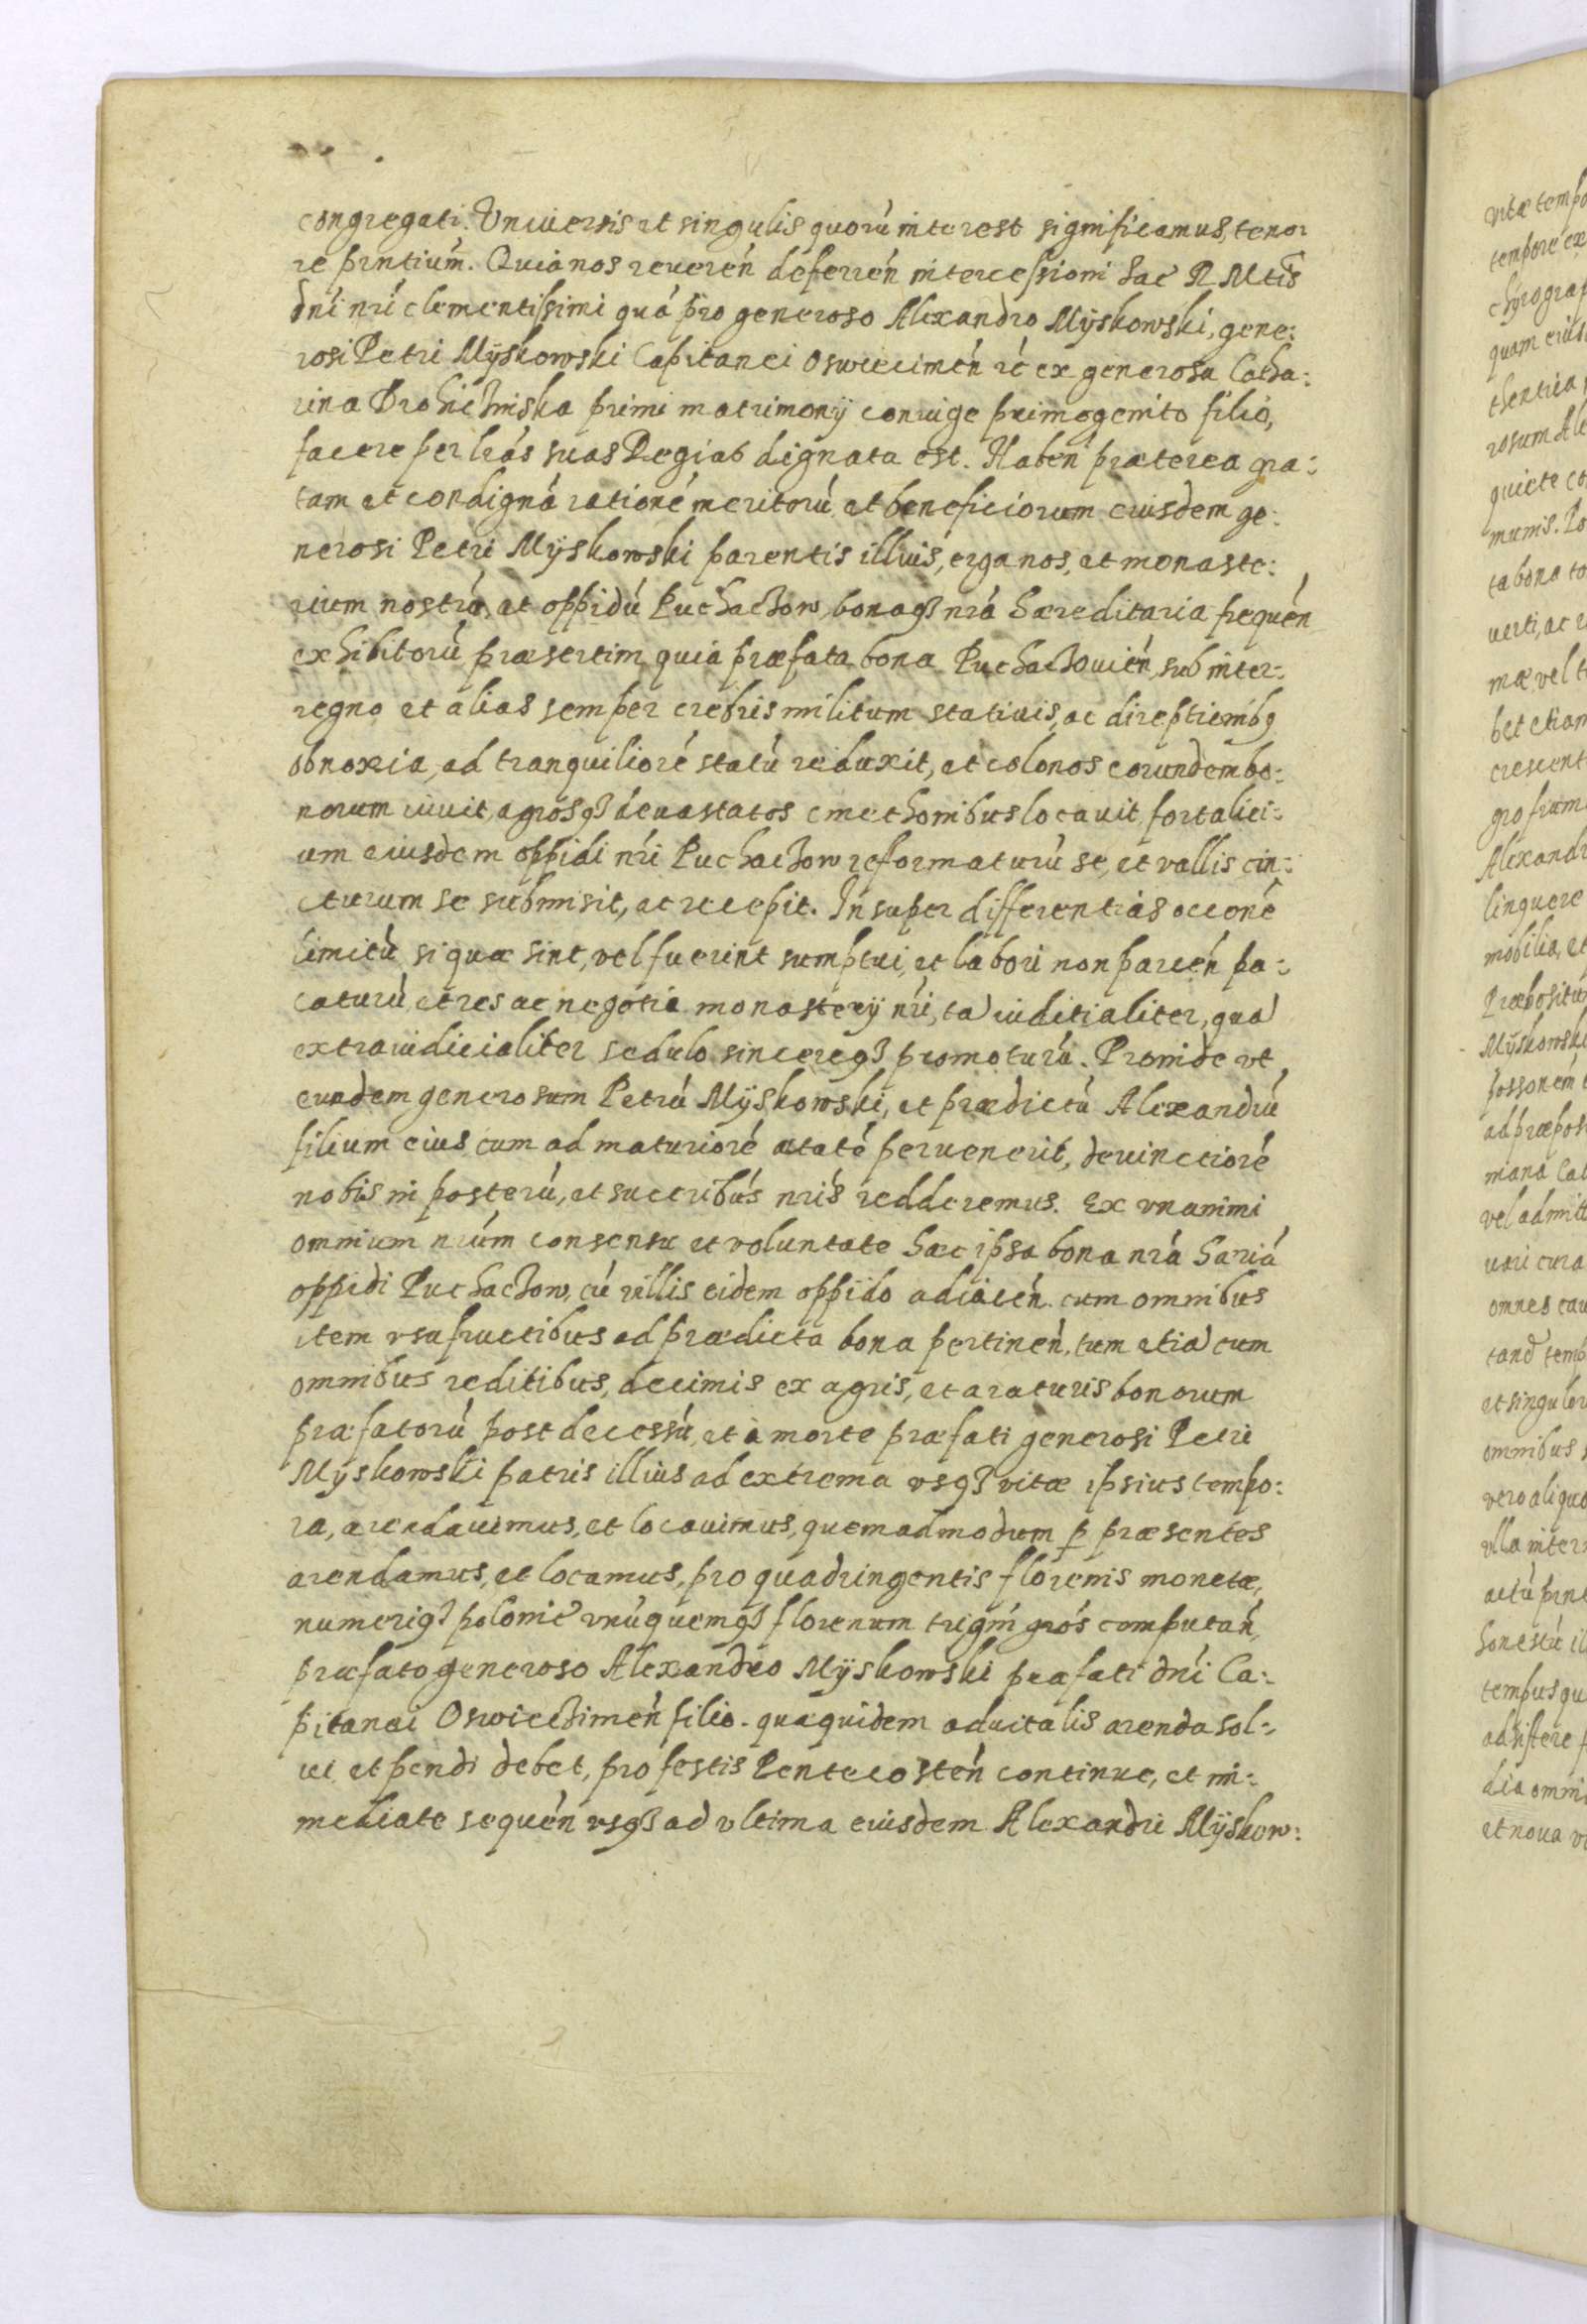 congregati. Vniuersis et singulis quorú interest significamus, tenor
re pñtium. Quia nos reuerén deferrén intercessioni Sac R Mtis
dní nrí clementissimi quá pro generoso Alexandro Myskowski, gene:
rosi Petri Myskowski Capitanei Oswiecimén ié ex generosa Catha:
rina Drohichinska primi matrimonij coniuge primogenito filio,
facere per lrás suas Regias dignata est. Habén praeterea gra:
tam et condignâ rationé meritorú et beneficiorum eiusdem ge:
nerosi Petri Myskowski parentis illius, erga nos, et monaste:
rium nostrú, et oppidú Puchaczow, bonaq3 nrá haereditaria frequén
exhibitorú praesertim quia praefata bona Puchaczouién, sub inter:
regno et alias semper crebris militum statiuis, ac direptionibg
obnoxia, ad tranquilioré statú reduxit, et colonos eorundem bo:
norum iuuit, agrosq3 deuastatos cmethonibus locauit, fortalici:
um eiusdem oppidi nri Puchaczow reformaturú se, et vallis cin:
cturum se submisit, ac recepit. Insuper differentias occoné
limitú si quae sint, vel fuerint sumptui, et labori non parcén pa:
caturú, et res ac negotia monasterij nri, ta iuditialiter, qua
extraiudicialiter sedulo sincereq3 promoturú. Proinde vt
eundem generosum Petrú Myskowski, et praedictú Alexandrú
filium eius cum ad maturioré aetaté peruenerit, deuinctioré
nobis in posterú, et succribús nris redderemus. Ex vnanimi
omnium nrúm consensu et voluntate haec ipsa bona nrá hariá
oppidi Puchaczow, cú villis eidem oppido adiacén. cum omnibus
item vsufructibus ad praedicta bona pertinén, tum etia cum
omnibus reditibus, decimis ex agris, et araturis bonorum
praefatorú post decessú, et à morte praefati generosi Petri
Myskowski patris illius ad extrema vsq3 vitae ipsius tempo:
ra, arendauimus, et locauimus, quemadmodum p praesentes
arendamus, et locamus, pro quadringentis florenis monetae,
numeriq3 polonic vnúquemq3 florenum trigin gros compután,
praefato generoso Alexandro Myskowski praefati dní Ca:
pitanei Oswieczimén filio. quaequidem aduitalis arenda sol:
ui et pendi debet, pro festis Pentecostén continue, et im:
mediate sequén vsq3 ad vltima eiusdem Alexandri Myskow: